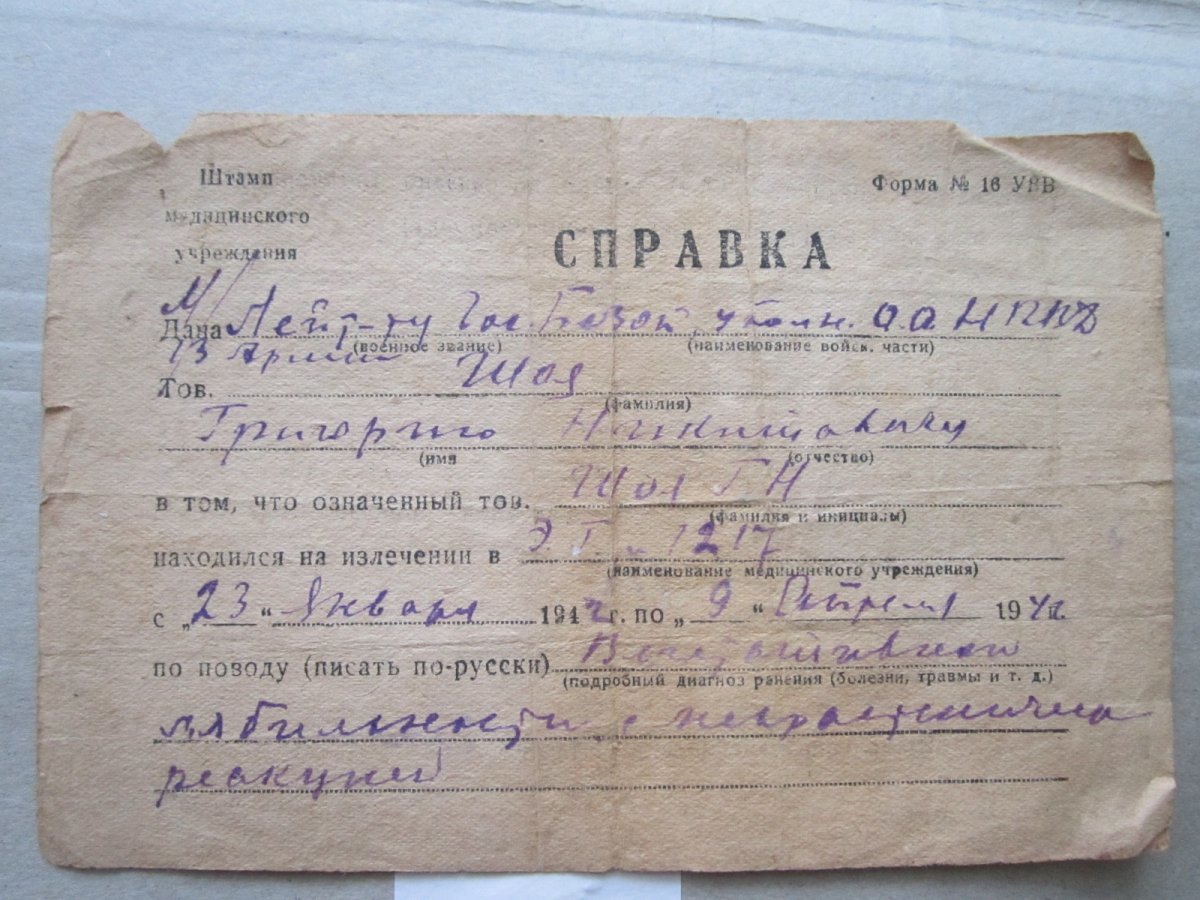 Штамп
медицинского
учреждения
Форма № 16 УВВ
СПРАВКА
Дана М/Лейт-ту Гос.Безоп, уполн. О.О. НКВД
(военное звание) (наименование войск. части)
13 Армии
Тов. Шоя
(фамилия)
Григорию Никитовичу
(имя (отчество)
в том, что означенный тов. Шоя Г Н
(фамилия и инициалы)
находился на излечении в Э.Г. 1217
(наименование медицинского учреждения)
с „23“ Января 1942 г. по „9“ Апреля 1942г.
по поводу (писать по-русски)
(подробный диагноз ранения (болезни, травмы и т. д.)
лябильности с неврастенической
реакцией